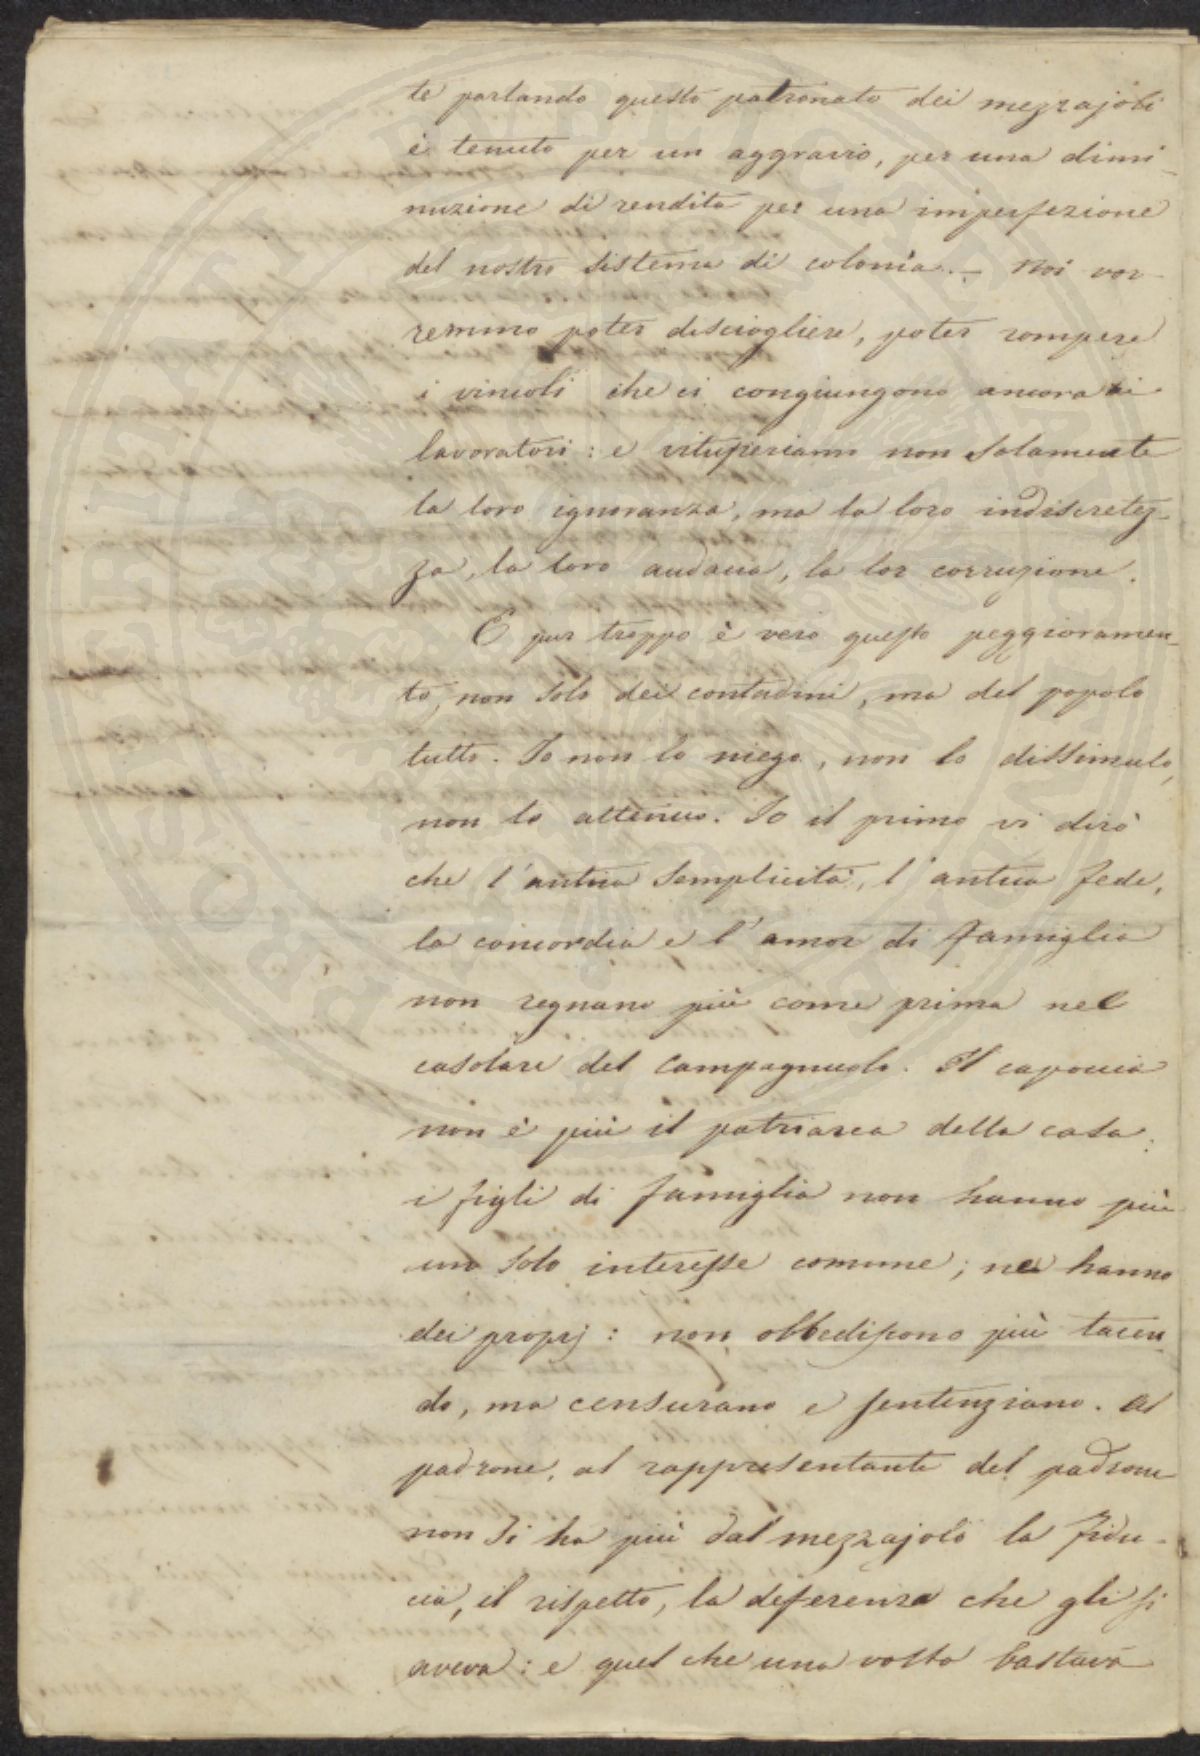 te parlando questo patronato dei mezzajoli
è tenuto per un aggravio, per una dimi
nuzione di rendita per una imperfezione
del nostro sistema di colonia. – Noi vor
remmo poter disciogliere, poter rompere
i vincoli che ci congiungono ancora ai
lavoratori: e vituperiamo non solamente
la loro ignoranza, ma la loro indiscretez-
za, la loro audacia, la lor corruzione.
E pur troppo è vero questo peggioramen-
to, non solo dei contadini, ma del popolo
tutto. Io non lo niego, non lo dissimulo,
non lo attenuo. Io il primo vi dirò
che l'antica semplicità, l'antica fede,
la concordia e l'amor di famiglia
non regnano più come prima nel
casolare del campagnuolo. Il capoccia
non è più il patriarca della casa.
i figli di famiglia non hanno più
uno solo interesse comune; ne hanno
dei proprj: non obbediscono più tacen-
do, ma censurano e sentenziano. Al
padrone, al rappresentante del padrone
non si ha più dal mezzajolo la fidu-
cia, il rispetto, la deferenza che gli si
aveva: e quel che una volta bastava
PROSPERITATI PUBLICAE AUGENDAE